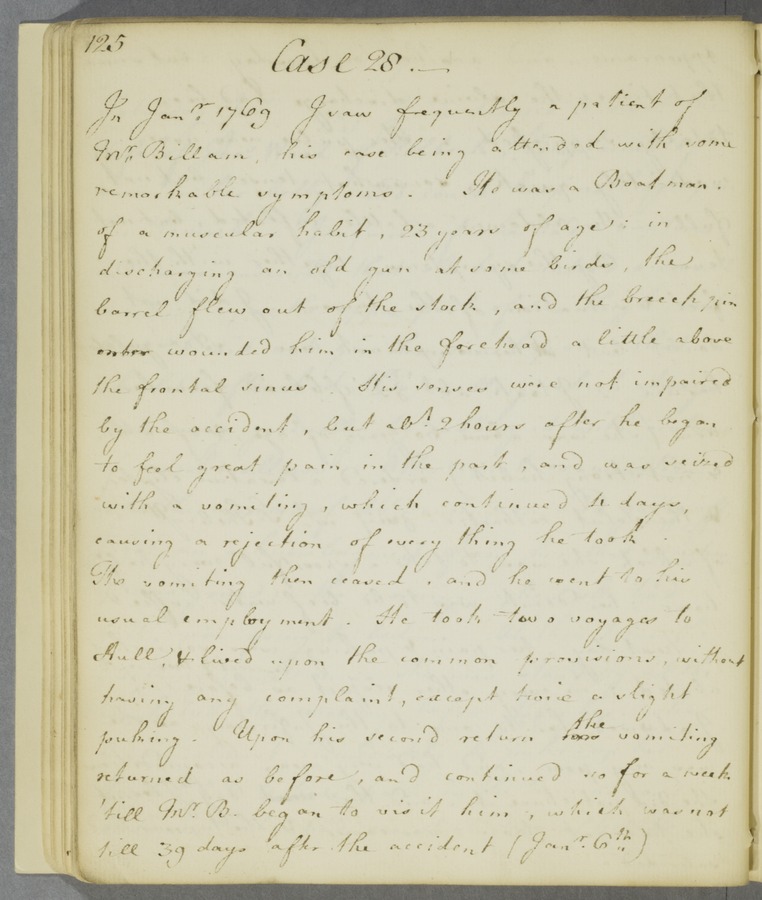 125
Case 28.—
In Janr. 1769 I saw frequently a patient of
Mr. Billam, his case being attended with some
remarkable symptoms. He was a Boatman.
of a muscular habit, 23 years of age; in
discharging an old gun at some birds, the
barrel flew out of the stock, and the breech pin
enter wounded him in the forehead a little above
the frontal sinus. His senses were not impaired
by the accident, but abt. 2 hours after he began
to feel great pain in the part, and was seized
with a vomiting, which continued 4 days,
causing a rejection of every thing he took.
The vomiting then ceased, and he went to his
usual employment. He took two voyages to
Hull, & lived upon the common provisions, without
having any complaint, except twice a slight
puking. Upon his second return the vomiting
returned as before, and continued so for a week
'till Mr. B. began to visit him, which was not
till 39 days after the accident (Janr. 6th)